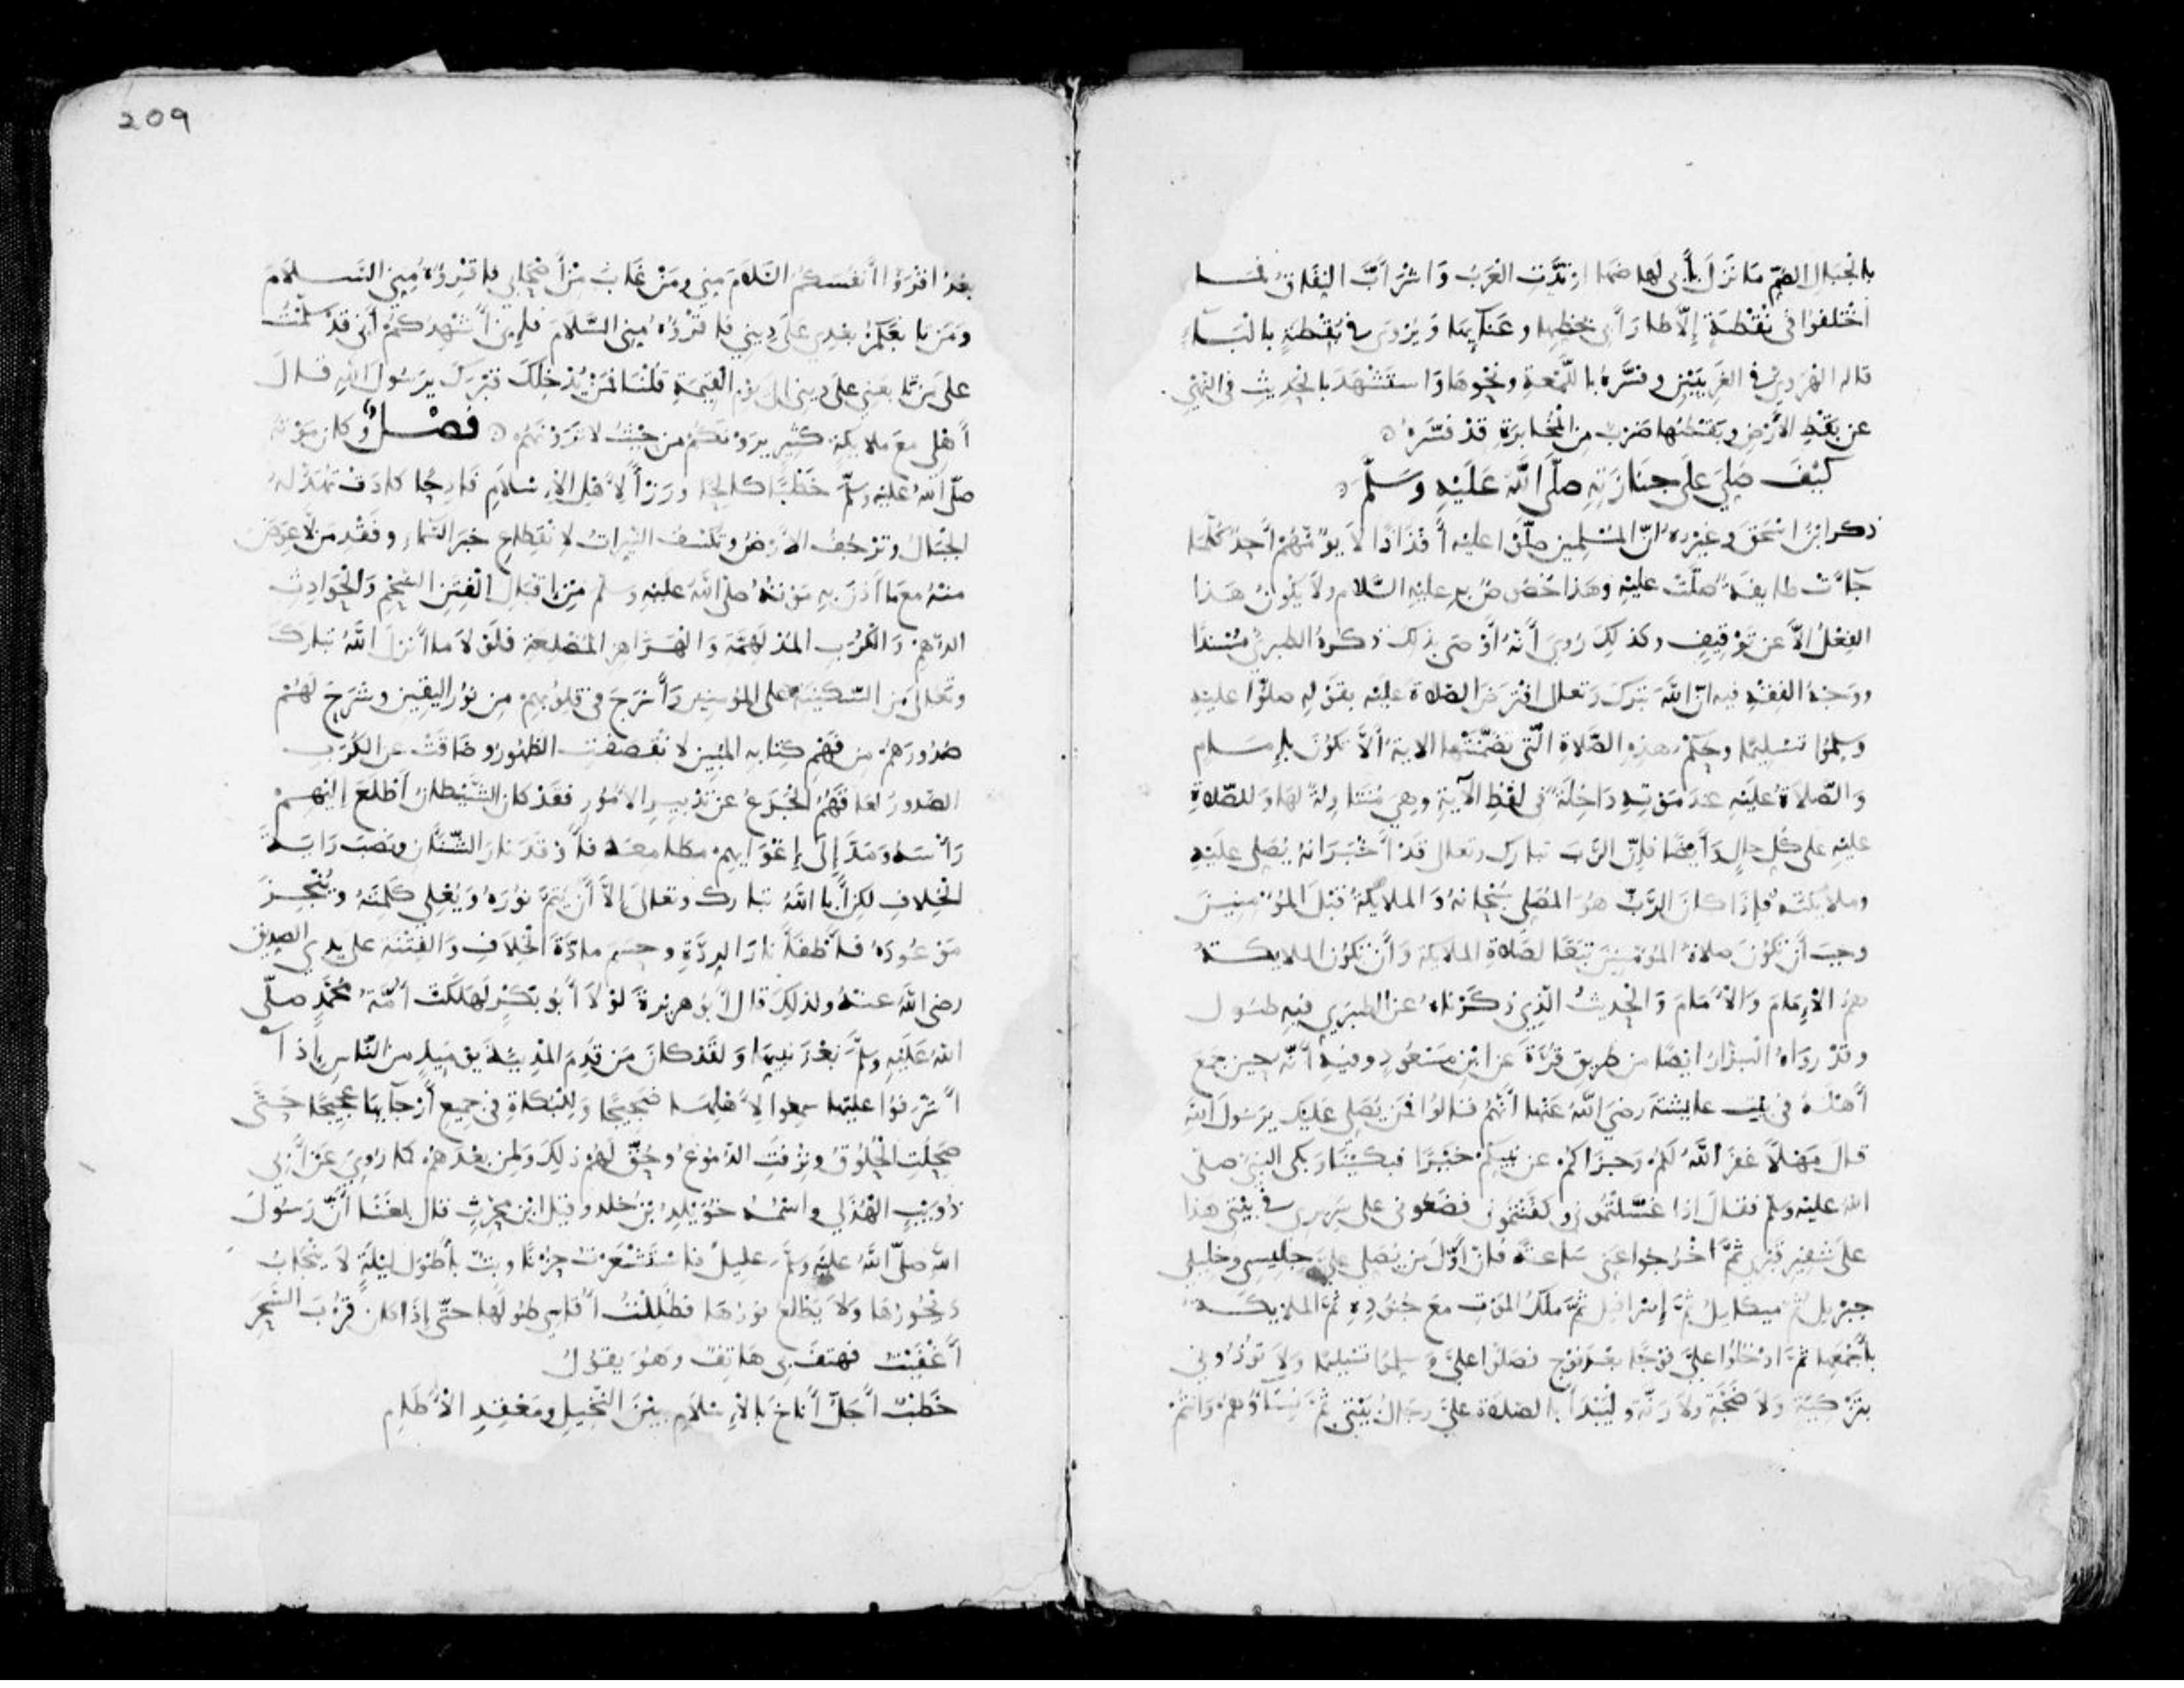 بالجبال الصم ما نزل بأبي لهاضها ارتدت العرب واشرأب النفاق فما
اختلفوا في نقطة إلا طار أبي بحظها وغنائها ويروى في بقطة بالباء
قاله الهروي في الغريبين وفسره باللمعة ونحوها واستشهد بالحديث في النهي
عن بقط الأرض وبقطها ضرب من المخابرة قد فسره
كيف صلي على جنازته صلى الله عليه وسلم
ذكر ابن اسحق وغيره ان المسلمين صلوا عليه أفذاذا لا يؤمهم أحد كلما
جآت طايفة صلت عليه وهذا خصوص به عليه السلام ولا يكون هذا
الفعل الا عن توقيف وكذلك روي أنه أوصى بذلك ذكره الطبري مسندا
ووجه الفقه فيه ان الله تبرك وتعالى افترض الصلاة عليه بقوله صلوا عليه
وسلموا تسليما وحكم هذه الصلاة التي تضمنتها الاية ألا تكون بإمام
والصلاة عليه عند موته داخلة في لفظ الآية وهي متناولة لها وللصلاة
عليه على كل حال وأيضا فإن الرب تبارك وتعالى قد أخبر انه يصلي عليه
وملائكته فإذا كان الرب هو المصلي سبحانه والملايكة قبل المؤمنين
وجب أن تكون صلاة المؤمنين تبعا لصلاة الملايكة وأن تكون الملايكة
هم الإمام والحديث الذي ذكرناه عن الطبري فيه طول
وقد رواه البزار ايضا من طريق مرة عن ابن مسعود وفيه أنه حين جمع
أهله في بيت عايشة رضي الله عنها أنهم قالوا فمن يصلي عليك يرسول الله
قال مهلا غفر الله لكم وجزاكم عن نبيكم خيرا فبكينا وبكى النبي صلى
الله عليه وسلم فقال اذا غسلتموني وكفنتموني فضعوني على سريري في بيتي هذا
على شفير قبري ثم اخرجوا عني ساعة فان أول من يصلي علي جليسي وخليلي
جبريل ثم ميكايل ثم إسرافيل ثم ملك الموت مع جنوده ثم الملايكة
بأجمعها ثم ادخلوا علي فوجا بعد فوج فصلوا علي وسلموا تسليما ولا تؤذوني
بتزكية ولا ضجة ولا رنة وليبدأ بالصلاة علي رجال بيتي ثم نساؤهم وانتم
209
بعد اقرؤا أنفسكم السلام مني ومن غاب من أصحابي فاقرؤه مني السلام
ومن تابعكم بعدي على ديني فاقرؤه مني السلام فإني أشهدكم أني قد سلمت
على من تابعني على ديني الى يوم القيمة قلنا فمن يدخلك قبرك يرسول الله قال
أهلي مع ملايكة كثير يرونكم من حيث لا ترونهم فصل وكان موته
صلى الله عليه وسلم خطبا كالحا ورزأ لأهل الإسلام فادحا كادت تهد له
الجبال وترجف الأرض وتكسف النيرات لانقطاع خبر السماء وفقد من لا عوض
منه مع ما آذن به موته صلى الله عليه وسلم من اقبال الفتن السحم والحوادث
الدهم والكرب المدلهمة والهزاهز المضلعة فلولا ما أنزل الله تبارك
وتعالى من السكينة على المؤمنين وأسرج في قلوبهم من نور اليقين وشرح لهم
صدورهم من فهم كتابه المبين لانقصفت الظهور وضاقت عن الكرب
الصدور ولعاقهم الجزع عن تدبير الأمور فقد كان الشيطان أطلع إليهم
رأسه ومد إلى إغوايهم مطامعه فأوقد نار الشنآن ونصب راية
الخلاف لكن أبا الله تبارك وتعالى إلا أن يتم نوره ويعلي كلمته وينجز
موعوده فأطفأ نار الردة وحسم مادة الخلاف والفتنة على يدي الصديق
رضي الله عنه ولذلك قال أبو هريرة لولا أبو بكر لهلكت أمة محمد صلى
الله عليه وسلم بعد نبيها ولقد كان من قدم المدينة يوميذ من الناس إذا
أشرفوا عليها سمعوا لأهلها ضجيجا وللبكاة في جميع أرجايها عجيجا حتى
صحلت الحلوق ونزفت الدموع وحق لهم ذلك ولمن بعدهم كما روي عن أبي
ذؤيب الهذلي واسمه خويلد بن خلد وقيل ابن محرث قال بلغنا أن رسول
الله صلى الله عليه وسلم عليل فاستشعرت حزنا وبت بأطول ليلة لا ينجاب
ديجورها ولا يطلع نورها فظللت أقاسي طولها حتى إذا كان قرب السحر
أغفيت فهتف بي هاتف وهو يقول
خطب أجل أناخ بالإسلام بين النخيل ومعقد الأطام